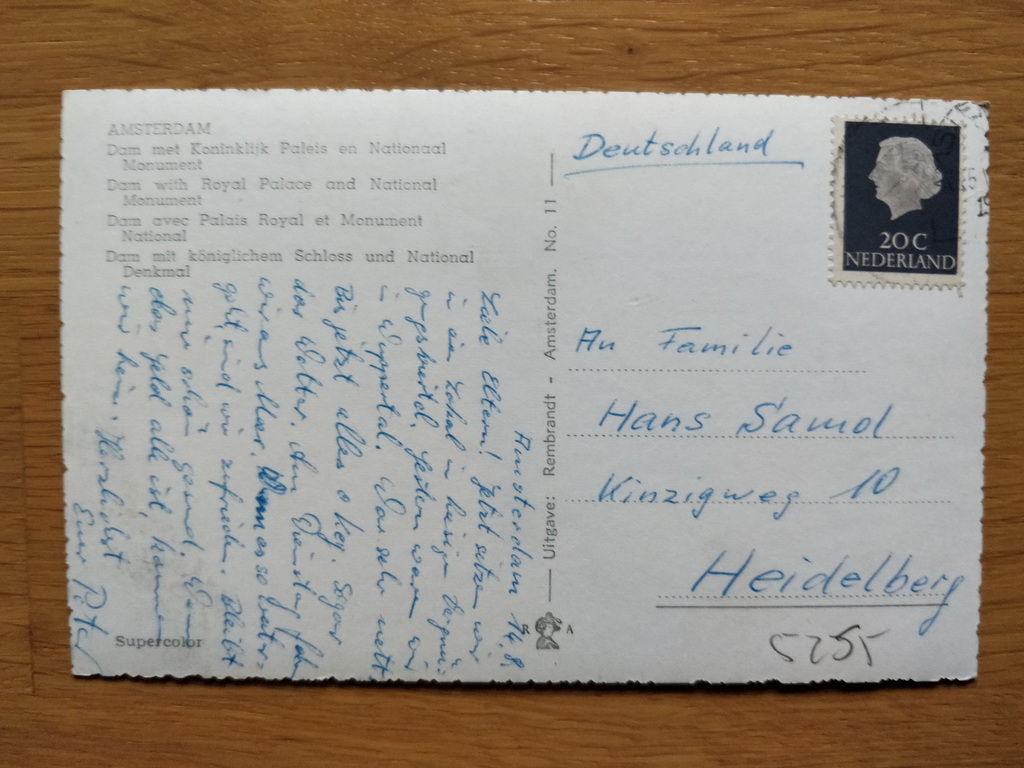 AMSTERDAM
Dam met Koninklijk Paleis en Nationaal
Monument
Dam with Royal Palace and National
Monument
Dam avec Palais Royal et Monument
National
Dam mit königlichem Schloss und National
Denkmal
Amsterdam 14.8.
Liebe Eltern! Jetzt sitzen wir
in ein Lokal in hiesigen
Gestern waren wir
in Wuppertal. War sehr nett.
Bis jetzt alles o key. Sogar
das Wetter. Am Dienstag fahren
wir ans Meer. Wenn es so weiter-
geht sind wir zufrieden. Bleibt
mir schön gesund. Wenn
das Geld alle ist, kommen
wir heim. Herzlichst
Euer Peter
Supercolor
Uitgave: Rembrandt - Amsterdam. No. 11
R A
Deutschland
20 C
NEDERLAND
An Familie
Hans Samol
Kinzigweg 10
Heidelberg
5255